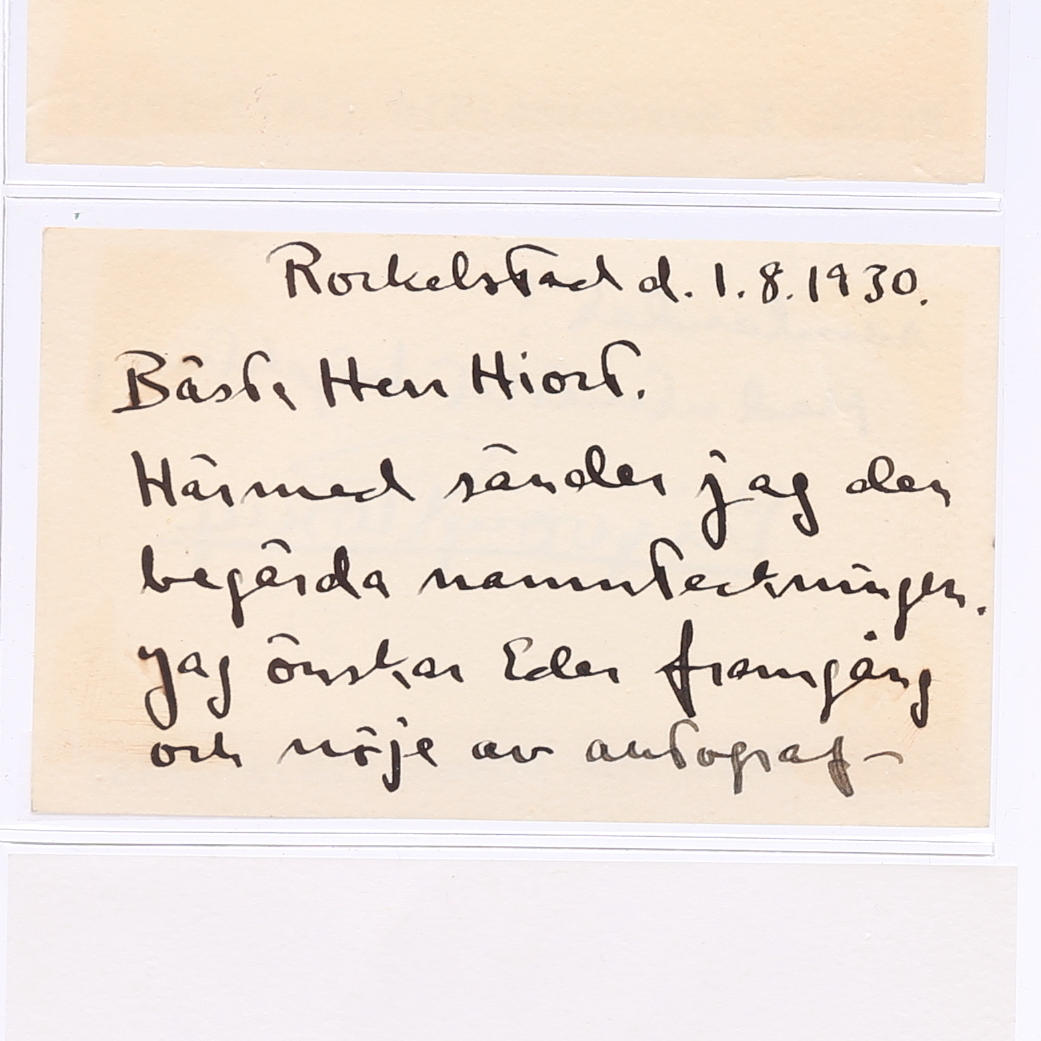 Rockelstad d. 1.8.1930.
Bästa Herr Hiort.
Härmed sänder jag den
begärda namnteckningen.
Jag önskar Eder framgång
och nöje av autograf-